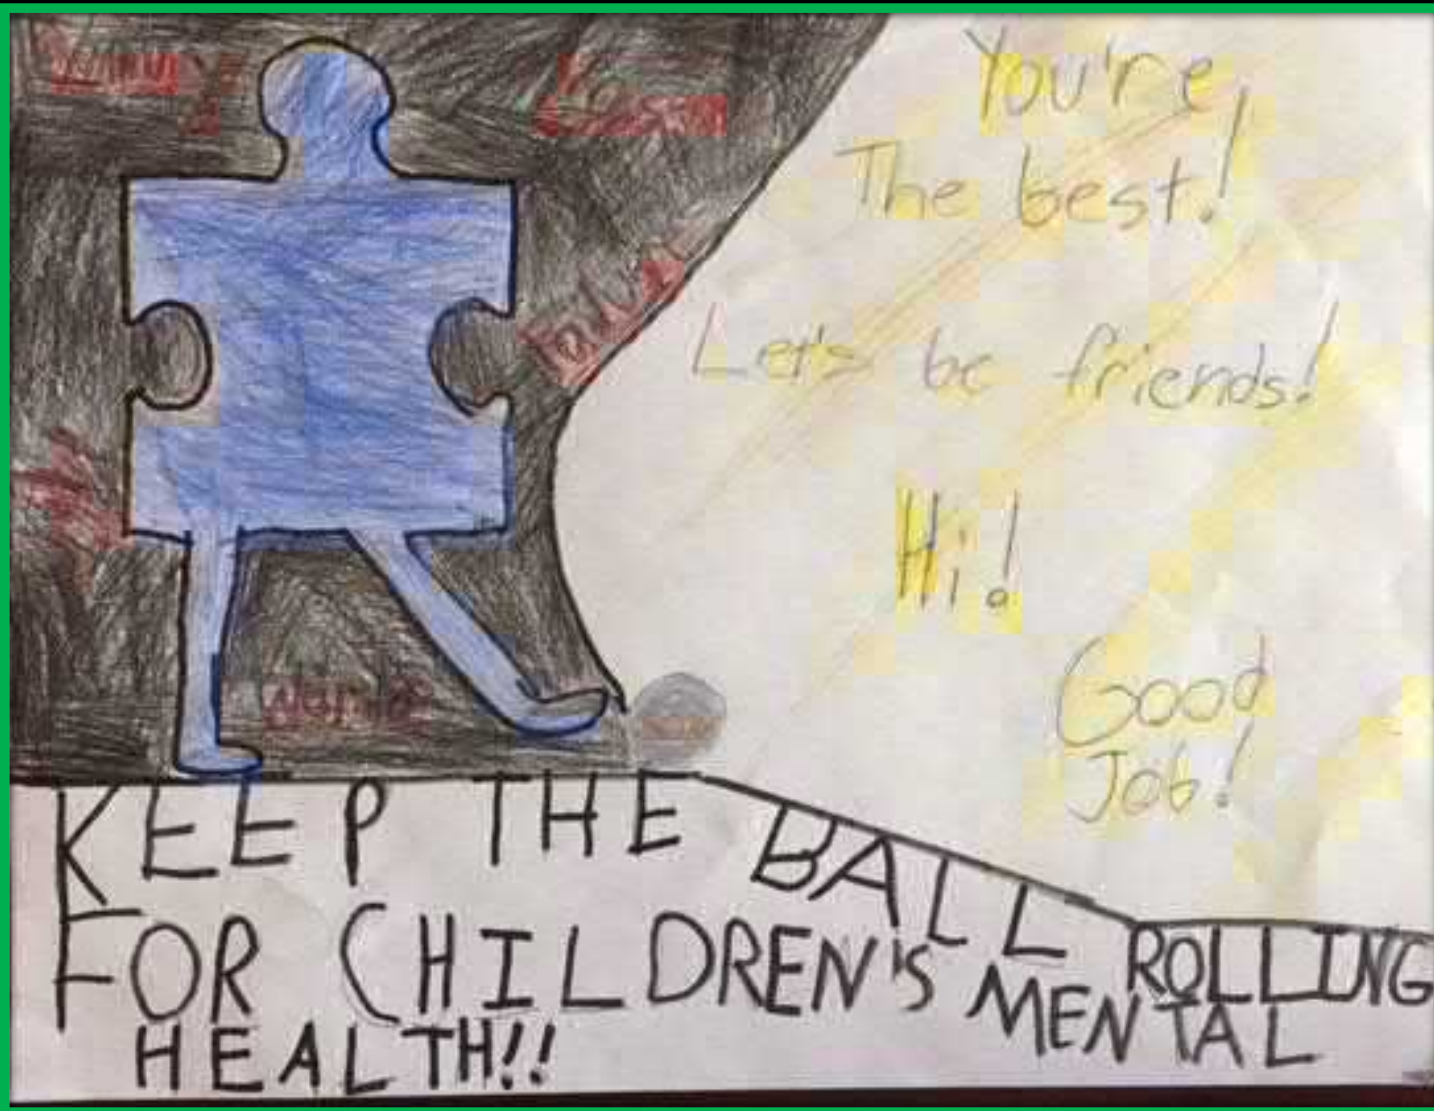 You're
The best!
Let's be friends!
Hi!
Good
Job!
KEEP THE BALL ROLLING
FOR CHILDREN'S MENTAL
HEALTH!!